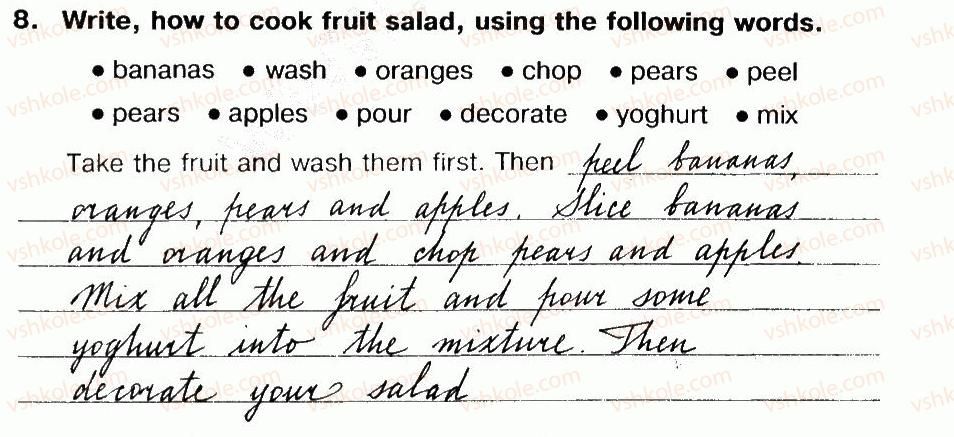 8. Write, how to cook fruit salad, using the following words.
• bananas • wash • oranges • chop • pears • peel
• pears • apples • pour • decorate • yoghurt • mix
Take the fruit and wash them first. Then peel bananas,
oranges, pears and apples. Slice bananas
and oranges and chop pears and apples.
Mix all the fruit and pour some
yoghurt into the mixture. Then
decorate your salad